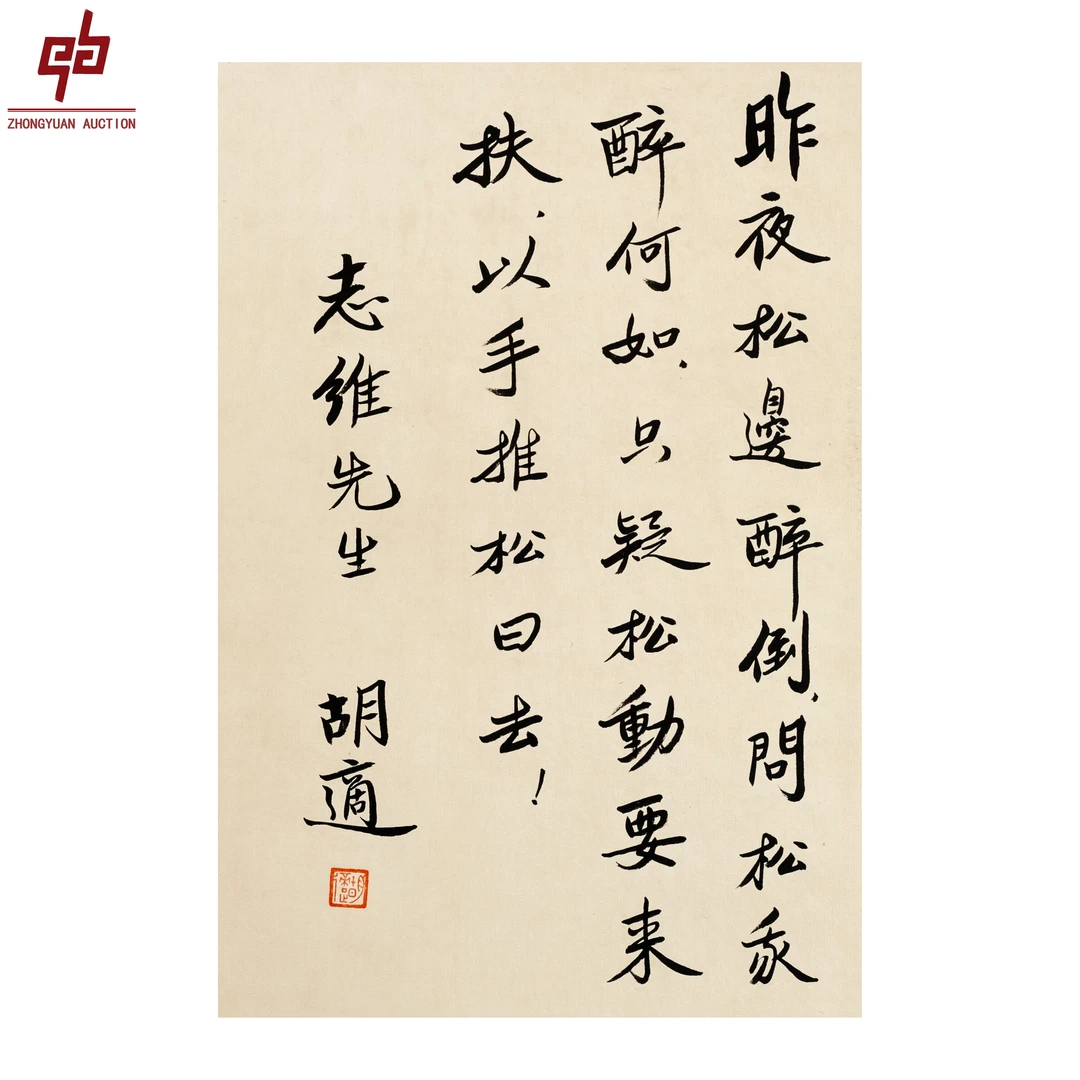 ZHONGYUAN AUCTION
昨夜松邊醉倒,問松我
醉何如.只疑松動要来
扶,以手推松曰去!
志維先生 胡適